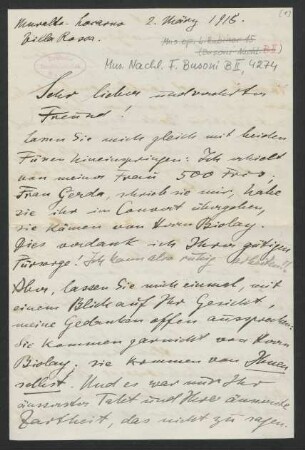 Muralto-Locarno 2. März 1916.
Villa Rossa.
Mus. Nachl. F. Busoni B II, 4274
Sehr lieber und verehrter
Freund!
Lassen Sie mich gleich mit beiden
Füßen hineinspringen: Ich erhielt
von meiner Frau 500 Frcs,
Frau Gerda, schrieb sie mir, habe
sie ihr im Concert übergeben,
sie kämen von Herrn Biolay.
Dies verdank ich Ihrer gütigen
Fürsorge! Ich kann also ruhig arbeiten!!
Aber, lassen Sie mich einmal, mit
einem Blick auf Ihr Gesicht,
meine Gedanken offen aussprechen:
Sie kommen garnicht von Herrn
Biolay, sie kommen von Ihnen
selbst. Und es war nur Ihr
äusserster Takt und Ihre
Zartheit, das nicht zu sagen.